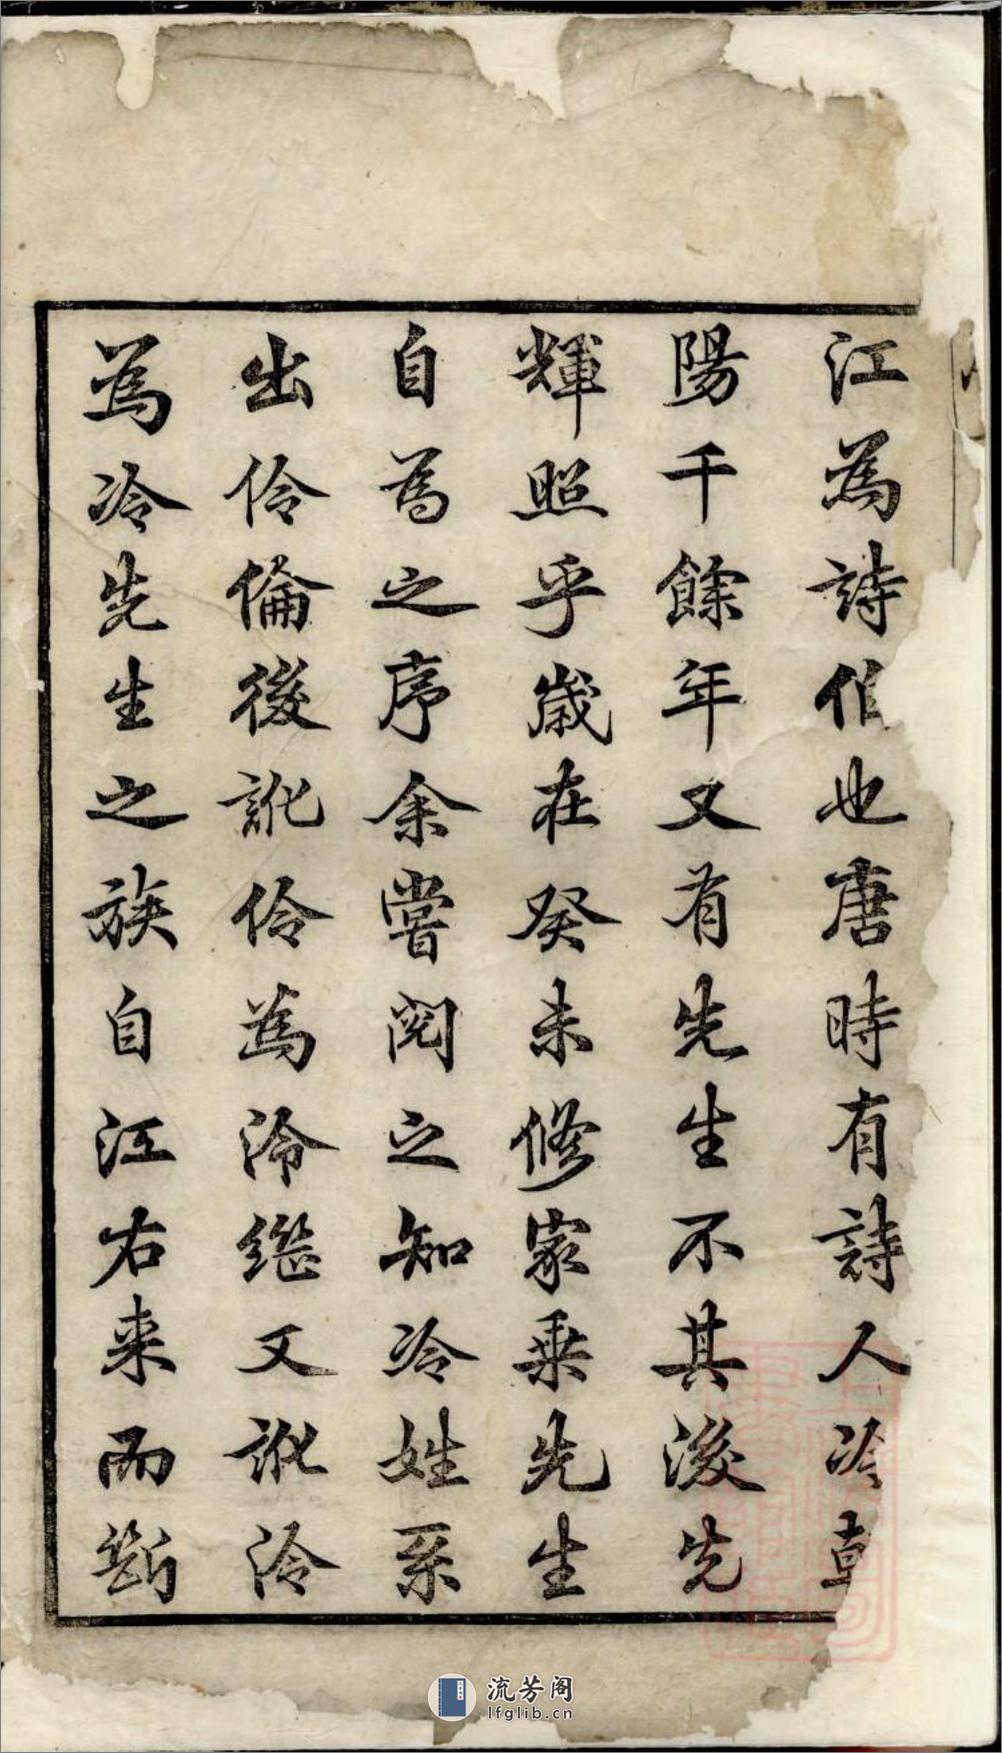 江為詩伯也唐時有詩人冷朝
陽千餘年又有先生不其後先
輝照乎歲在癸未修家乗先生
自為之序余嘗閱之知冷姓系
出伶倫後訛伶為泠継又訛泠
為冷先生之族自江右来而断
流芳阁
lfglib.cn